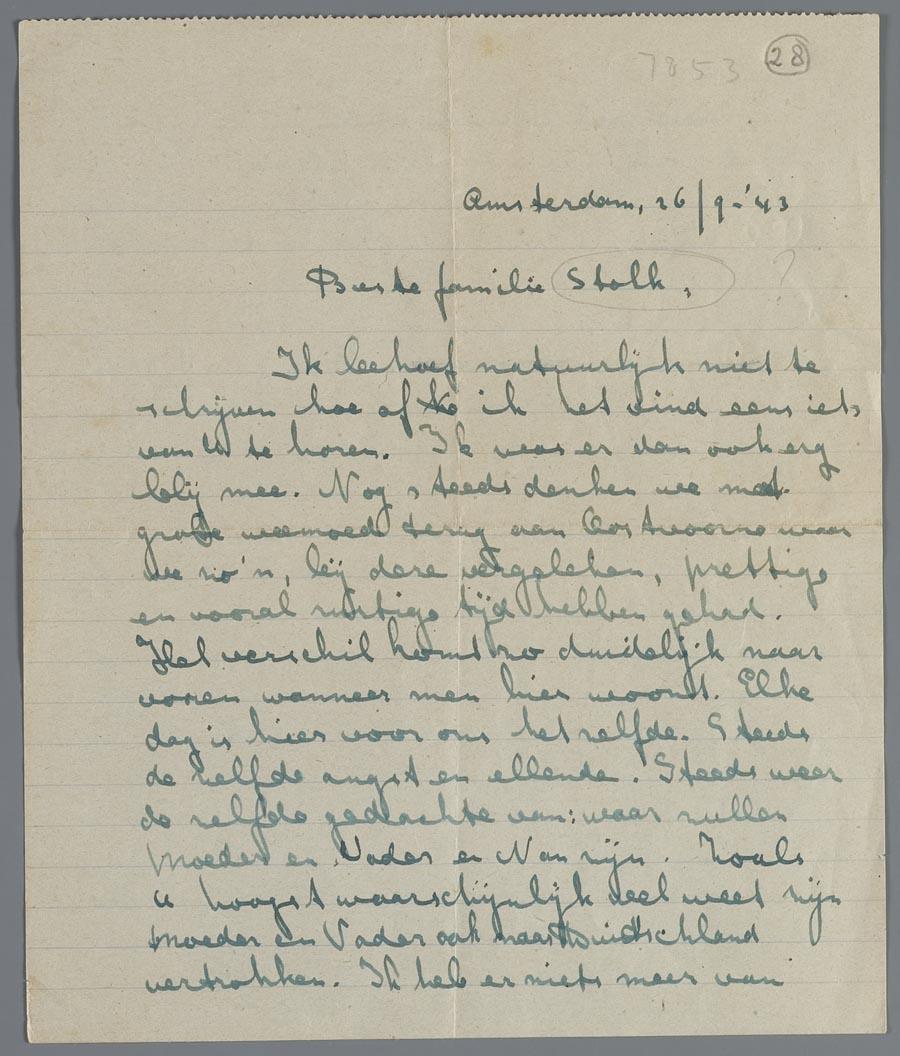 7853 28
Amsterdam, 26/9-'43
Beste familie Stolk, ?
Ik behoef natuurlijk niet te
schrijven hoe of ik het vind eens iets
van U te horen. Ik was er dan ook erg
blij mee. Nog steeds denken we met
grote weemoed terug aan Oostvoorne waar
we zo'n, bij deze vergeleken, prettige
en vooral rustige tijd hebben gehad.
Het verschil komt zo duidelijk naar
voren wanneer men hier woont. Elke
dag is hier voor ons het zelfde. Steeds
de zelfde angst en ellende. Steeds weer
de zelfde gedachte van: waar zullen
Moeder en Vader en Nan zijn. Zoals
u hoogst waarschijnlijk wel weet zijn
Moeder en Vader ook naar Duitschland
vertrokken. Ik heb er niets meer van